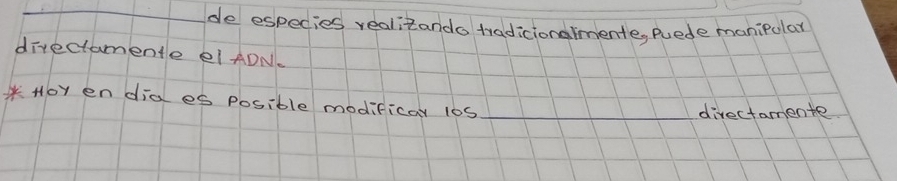 __________ de especies realizando tradicionalmente, Puede manipular
directamente el ADN.
* Hoy en dia es Posible modificar los __________ directamente